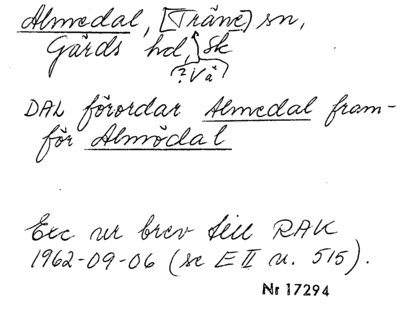 Almedal, [Träne] sn,
Gärds hd, Sk
(?Vä)
DAL förordar Almedal fram-
för Almödal
Exc ur brev till RAK
1962-09-06 (se E II u. 515).
Nr 17294